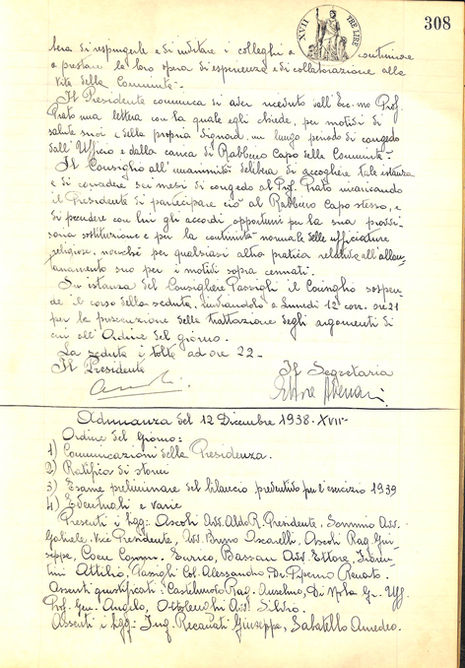 308
XVII TRE LIRE
bera di respingerle e di invitare i colleghi a continuare
a prestare la loro opera di esperienza e di collaborazione alla
vita della Comunità.
Il Presidente comunica di aver ricevuto dall'Ecc.mo Prof.
Prato una lettera con la quale egli chiede, per motivi di
salute suoi e della propria Signora, un lungo periodo di congedo
dall'Ufficio e dalla carica di Rabbino Capo della Comunità.
Il Consiglio all'unanimità delibera di accogliere tale istanza
e di concedere sei mesi di congedo al Prof. Prato incaricando
il Presidente di partecipare ciò al Rabbino Capo stesso, e
di prendere con lui gli accordi opportuni per la sua provvi-
soria sostituzione e per la continuità normale delle ufficiature
religiose, nonché per qualsiasi altra pratica relativa all'allon-
tanamento suo per i motivi sopra cennati.
Su istanza del Consigliere Passigli il Consiglio sospen-
de il corso della seduta, rinviandola a Lunedì 12 corr. ore 21
per la prosecuzione della trattazione degli argomenti di
cui all'Ordine del giorno.
La seduta è tolta ad ore 22-
Il Presidente Il Segretario
Adunanza del 12 Dicembre 1938-XVII-
Ordine del Giorno:
1) Comunicazioni della Presidenza.
2) Ratifica di storni
3) Esame preliminare del bilancio preventivo per l'esercizio 1939
4) Eventuali e varie
Presenti i Sigg: Ascoli Avv. Aldo R. Presidente, Sonnino Avv.
Gabriele, Vice Presidente, Avv. Bruno Ascarelli, Ascoli Rag. Giu-
seppe, Coen Comm. Enrico, Bassan Avv. Ettore, Fioren-
tini Attilio, Passigli Col. Alessandro, Dr. Piperno Renato.
Assenti giustificati: Castelnuovo Rag. Anselmo, Di Nola Gr. Uff.
Prof. Gen. Angelo, Ottolenghi Avv. Silvio.
Assenti i Sigg: Ing. Recanati Giuseppe, Sabatello Amedeo.